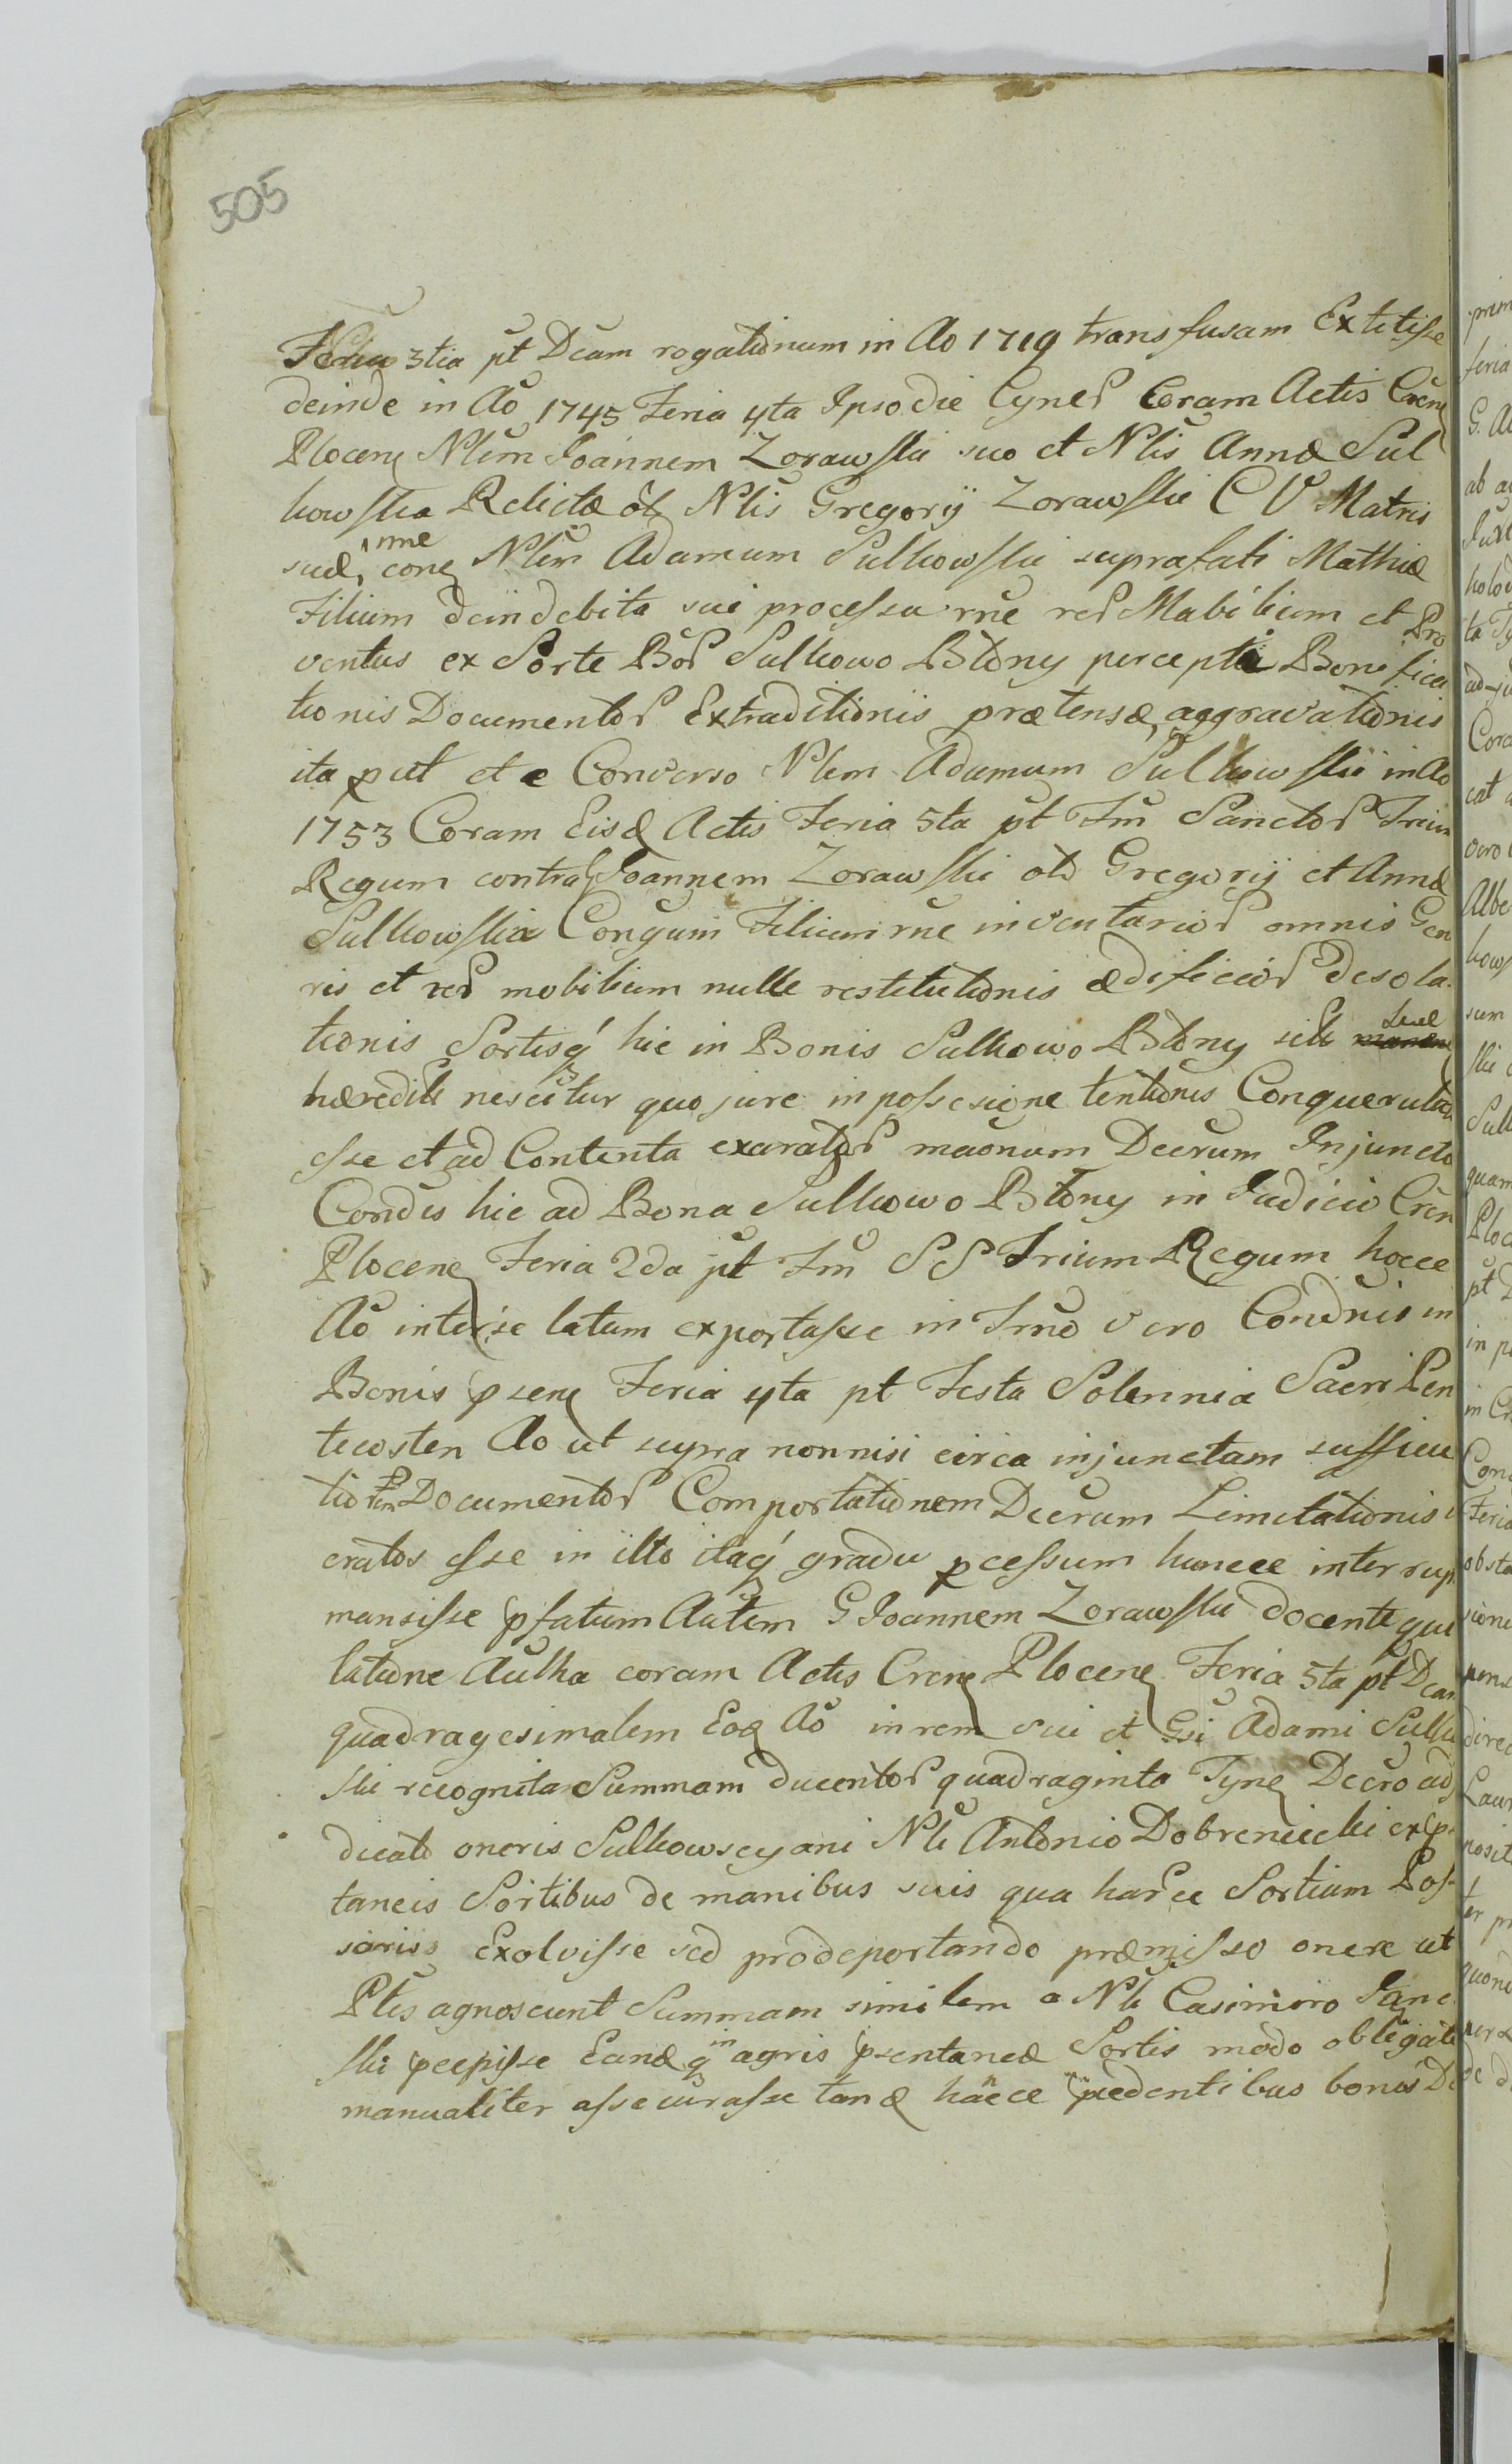 505
Feria 3tia pt Dcam rogationum in Ao 1719 transfusam Extitisse
deinde in Ao 1745 Feria 4ta Ipso die Cyner Coram Actis Cren
Plocen Nlem Joannem Zorawski suo et Nlis Annæ Sul
kowska Relictæ ol Nlis Gregorij Zorawskie C V Matris
suæ nne con Nlem Adamum Sulkowski suprafati Mathiæ
Filium deindebita sui processu rne rer Mabilium et Pro
ventus ex Sorte Bor Sulkowo Btony percepti Bonifica
tionis Documentor Extraditionis prætensæ aggravationis
ita put et e Converso Nlem Adamum Sulkowskii in Ao
1753 Coram Eisd Actis Feria 5ta pt Fm Sanctor Trium
Regum contra G Joannem Zorawski ol Gregorij et Annæ
Sulkowskia Congum Filium rne inventarior omnis Gen
ris et rer mobilium nulle restitutionis ædificior desola
tionis Sortisq hic in Bonis Sulkowo Btony sibi
hæredit nescitur quo jure in possesione tentionis Conquerulat
esse et ad Contenta exarator maonum Decrum Injuncto
Condis hic ad Bona Sulkowo Btony in Judicio Cren
Plocene Feria 2da pt Fm SS Trium Regum hocce
Ao inter se latum exportasse in Trno vero Condnis in
Bonis psen Feria 4ta pt Festa Solennia Sacri Pen
tecosten Ao ut supra nonnisi circa injunctam sufficien
Documentor Comportationem Decrum Limitationis
cratos esse in illo itaq gradu pcessum huncce interrup
mansisse pfatum Autem G Joannem Zorawski docente qui
latione Aulka coram Actis Cren Plocene Feria 5ta pt Dcam
quadragesimalem Eod Ao in rem sui et Gsi Adami Sulko
ski recognita Summam ducentor quadraginta Tyne Decro ad
dicato oneris Sulkowscyani Nli Antonio Dobreniecki ex p
taneis Sortibus de manibus suis qua harce Sortium Pos
soriis Exolvisse sed prodeportando præmisso onere ut
Ptes agnoscunt Summam similem a Nli Casimiro Jane
ski pcepisse Eandq in agris psentaneæ Sortis modo obligat
manualiter assecurasse tand haece pcedentibus bonis De